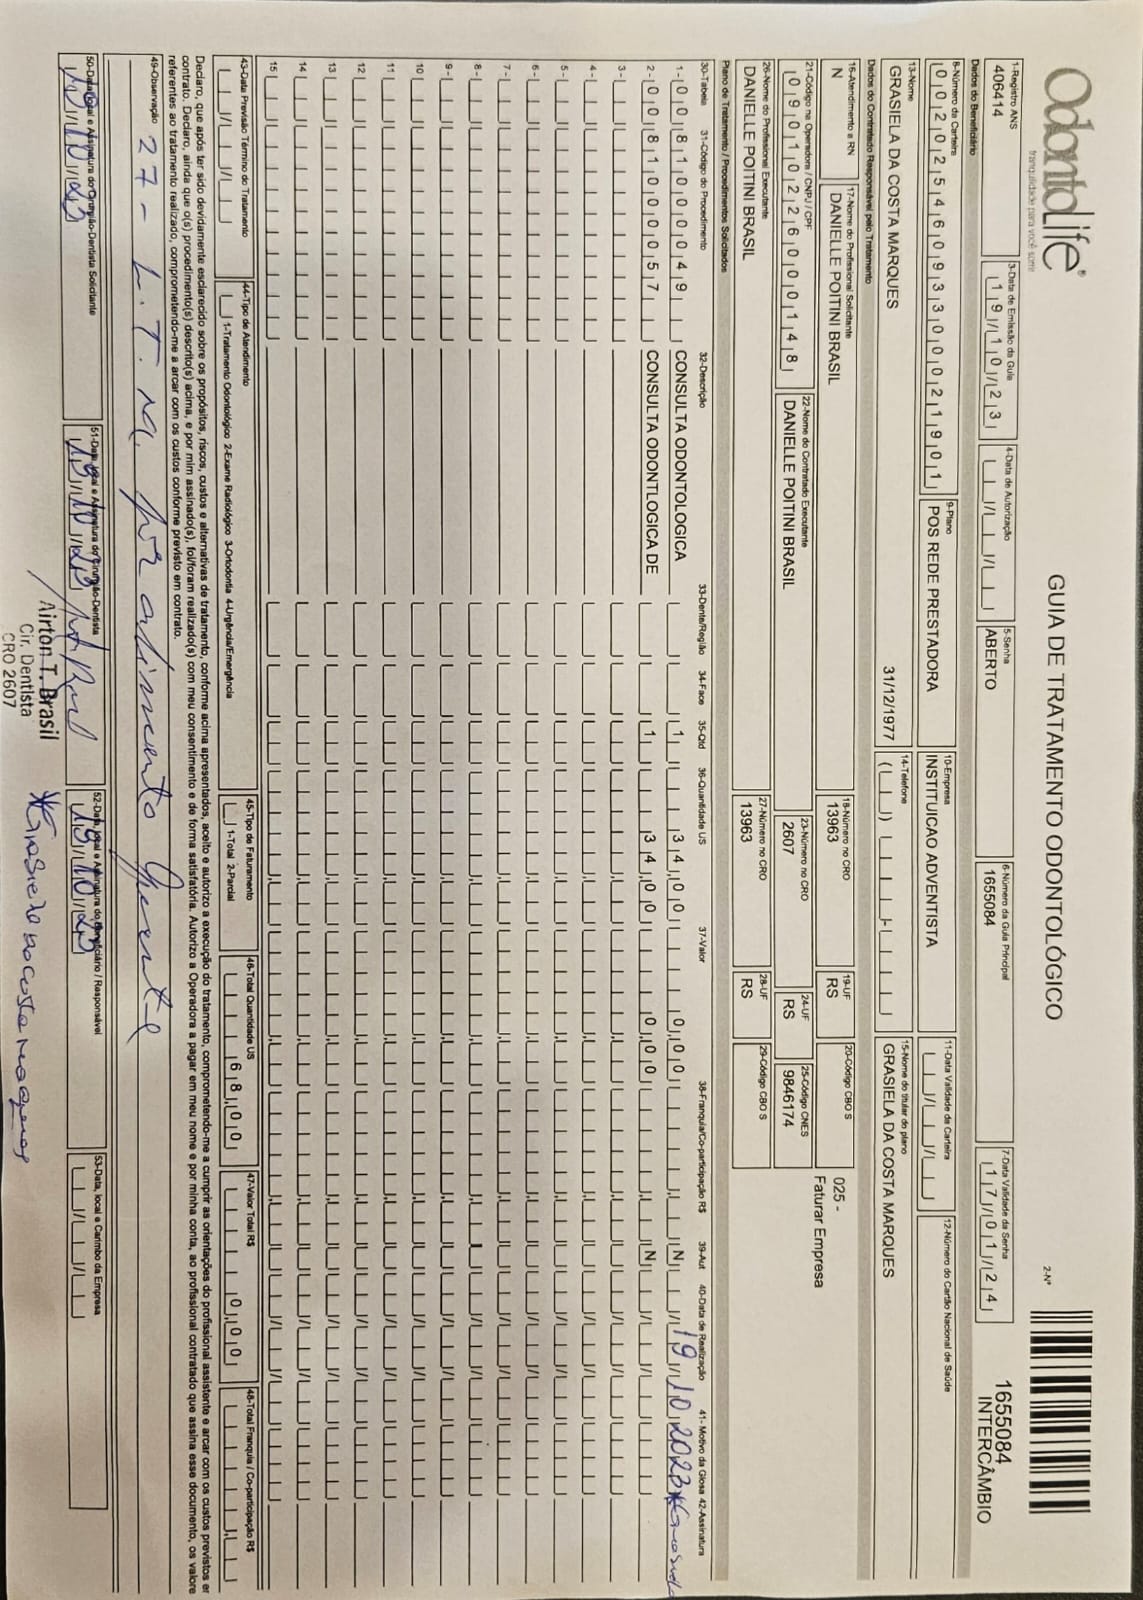 OdontoLife®
tranquilidade para você sorrir
GUIA DE TRATAMENTO ODONTOLÓGICO
2-Nº
1655084
INTERCÂMBIO
1-Registro ANS
406414
3-Data de Emissão da Guia
19/10/23
4-Data de Autorização
5-Senha
ABERTO
6-Número da Guia Principal
1655084
7-Data Validade da Senha
17/01/24
Dados do Beneficiário
8-Número da Carteira
00202546093300021901
9-Plano
POS REDE PRESTADORA
10-Empresa
INSTITUICAO ADVENTISTA
11-Data Validade da Carteira
12-Número do Cartão Nacional de Saúde
13-Nome
GRASIELA DA COSTA MARQUES 31/12/1977
14-Telefone
15-Nome do titular do plano
GRASIELA DA COSTA MARQUES
Dados do Contratado Responsável pelo Tratamento
16-Atendimento a RN
N
17-Nome do Profissional Solicitante
DANIELLE POITINI BRASIL
18-Número no CRO
13963
19-UF
RS
20-Código CBO S
025 -
Faturar Empresa
21-Código na Operadora / CNPJ / CPF
09010226000148
22-Nome do Contratado Executante
DANIELLE POITINI BRASIL
23-Número no CRO
2607
24-UF
RS
25-Código CNES
9846174
26-Nome do Profissional Executante
DANIELLE POITINI BRASIL
27-Número no CRO
13963
28-UF
RS
29-Código CBO S
Plano de Tratamento / Procedimentos Solicitados
30-Tabela 31-Código do Procedimento 32-Descrição 33-Dente/Região 34-Face 35-Qtd 36-Quantidade US 37-Valor 38-Franquia/Co-participação R$ 39-Aut 40-Data de Realização 41- Motivo da Glosa 42-Assinatura
1- 00 81000049 CONSULTA ODONTOLOGICA 1 34,00 0,00 N 19/10/2023
2- 00 81000057 CONSULTA ODONTLOGICA DE 1 34,00 0,00 N
3-
4-
5-
6-
7-
8-
9-
10
11
12
13
14
15
43-Data Previsão Término do Tratamento
44-Tipo de Atendimento
1-Tratamento Odontológico 2-Exame Radiológico 3-Ortodontia 4-Urgência/Emergência
45-Tipo de Faturamento
1-Total 2-Parcial
46-Total Quantidade US
68,00
47-Valor Total R$
0,00
48-Total Franquia / Co-participação R$
Declaro, que após ter sido devidamente esclarecido sobre os propósitos, riscos, custos e alternativas de tratamento, conforme acima apresentados, aceito e autorizo a execução do tratamento, comprometendo-me a cumprir as orientações do profissional assistente e arcar com os custos previstos er
contrato. Declaro, ainda que o(s) procedimento(s) descrito(s) acima, e por mim assinado(s), foi/foram realizado(s) com meu consentimento e de forma satisfatória. Autorizo a Operadora a pagar em meu nome e por minha conta, ao profissional contratado que assina esse documento, os valore
referentes ao tratamento realizado, comprometendo-me a arcar com os custos conforme previsto em contrato.
49-Observação
27 - L.T. M. por alimento quente
50-Data, local e Assinatura do Cirurgião-Dentista Solicitante
19/10/23
51-Data, local e Assinatura do Cirurgião-Dentista
19/10/23
52-Data, local e Assinatura do Beneficiário / Responsável
19/10/23
53-Data, local e Carimbo da Empresa
Airton T. Brasil
Cir. Dentista
CRO 2607
Grasiela da Costa Marques